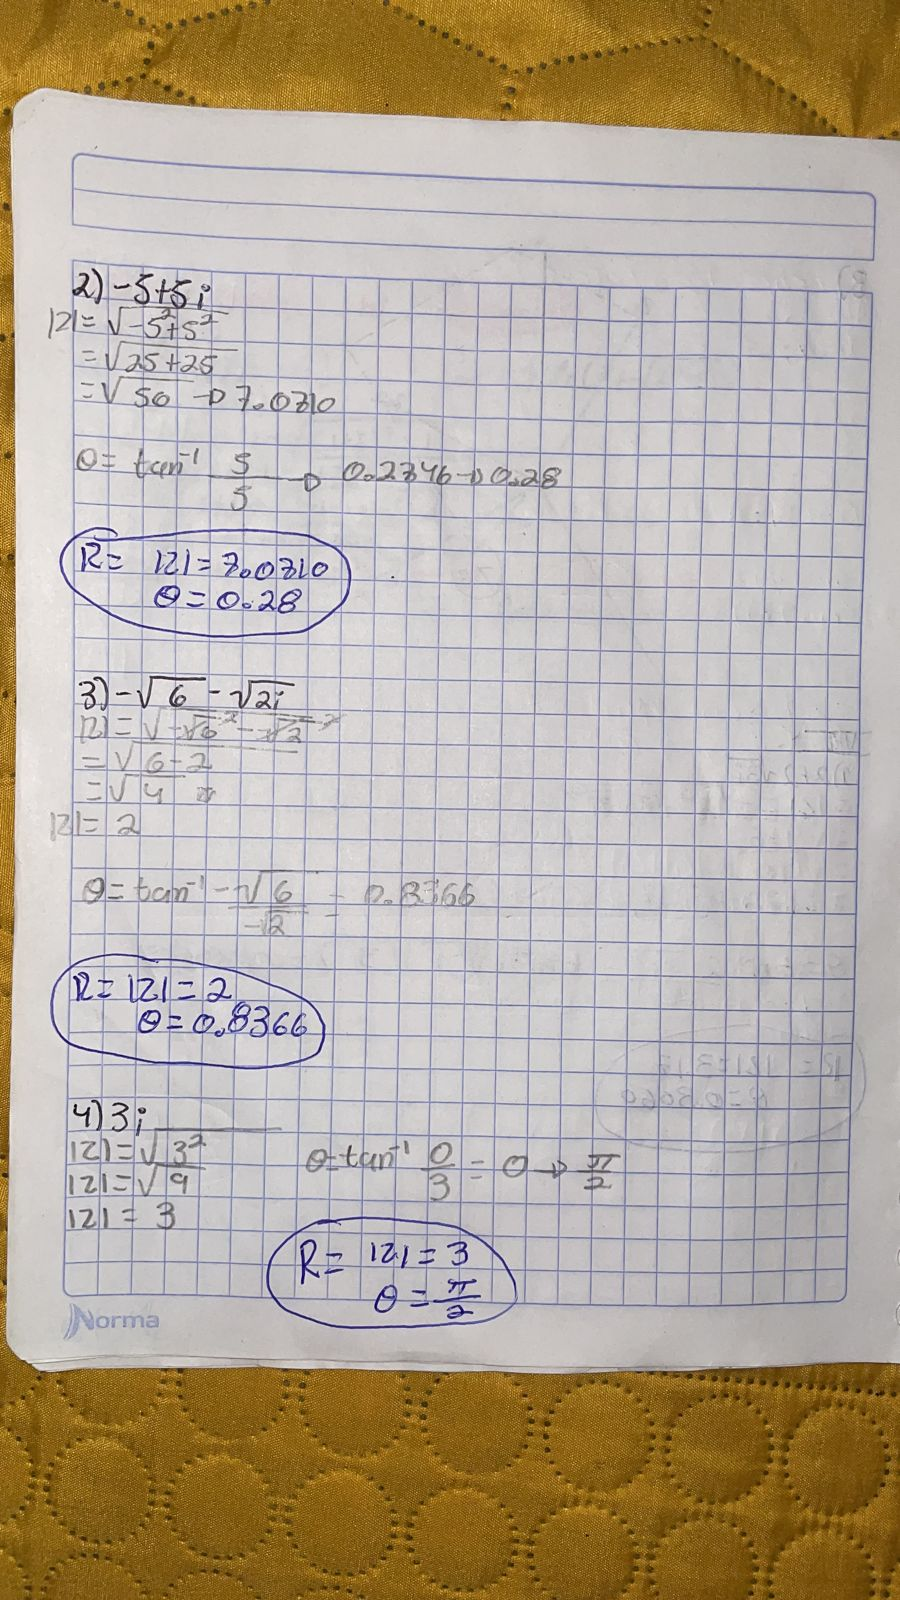 2) -5+5i
|z|= √-5²+5²
= √25+25
= √50 → 7.0710
θ= tan⁻¹ 5/5 → 0.2346 → 0.28
R= |z|= 7.0710
θ= 0.28
3) -√6 - √2i
|z|= √-√6² - √2²
= √6-2
= √4
|z|= 2
θ= tan⁻¹ -√6/-√2 = 0.8366
R= |z|= 2
θ= 0.8366
4) 3i
|z|= √3²
|z|= √9
|z| = 3
θ=tan⁻¹ 0/3 = 0 → π/2
R= |z|= 3
θ= π/2
Norma